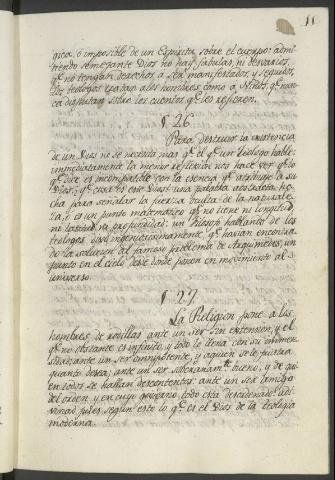 11
gica, ó imposible de un Espiritu sobre el cuerpo: admi-
tiendo semejante Dios no hay fabulas, ni desvarios,
qe. no tengan derechos à ser manifestados, y seguidos.
Los teologos tratan a los hombres como a Niños, qe. nun-
ca disputan sobre los cuentos qe. les refieren.
§ 26
Para destruir la existencia
de un Dios no se necesita mas qe. el qe. un Teologo hable:
immediatamente la menor reflexion nos hace ver qe. lo
qe. dice es incompatible con la esencia qe. atribuye a su
Dios; qe. cosa es este Dios? una palabra abstracta he-
cha para señalar la fuerza oculta de la naturale-
za, ó es un punto matematico qe. no tiene ni longitud
ni latitud, ni profundidad: un Filosofo hablando de los
teologos dijo ingeniosisimamente, qe. havian encontra-
do la solucion al famoso problema de Arquimedes; un
punto en el cielo desde donde ponen en movimiento al
universo.
§ 27.
La Religion pone a los
hombres de rodillas ante un Ser sin extension, y el
qe. no obstante es infinito, y todo lo llena con su immen-
sidad: ante un ser omnipotente, y aquien se le frustra
quanto desea; ante un ser soberanamte. bueno, y de qn.
todos se hallan descontentos: ante un ser amigo
del orden y en cuyo govierno todo está desordenado: adi-
vinad pues, segun esto lo qe. es el Dios de la teologia
moderna.